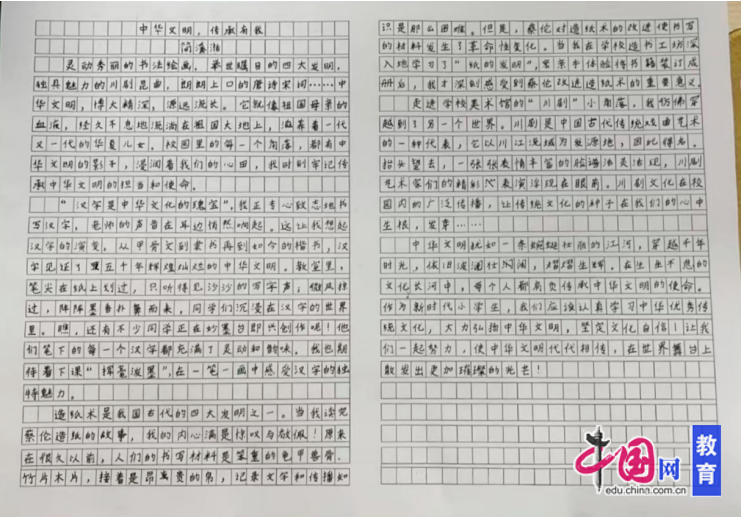 中华文明，传承有我
灵动秀丽的书法绘画，举世瞩目的四大发明，
独具魅力的川剧昆曲，朗朗上口的唐诗宋词……中
华文明，博大精深，源远流长。它就像祖国母亲的
血液，经久不息地流淌在祖国大地上，滋养着一代
又一代的华夏儿女。校园里的每一个角落，都有中
华文明的影子，浸润着我们的心田，我时刻牢记传
承中华文明的担当和使命。
“汉字是中华文化的瑰宝”。我正专心致志地书
写汉字，老师的声音在耳边悄然响起。这让我想起
汉字的演变，从甲骨文到隶书再到如今的楷书，汉
字见证了五千年辉煌灿烂的中华文明。教室里，
笔尖在纸上划过，只听得见沙沙的写字声，微风掠
过，阵阵墨香扑鼻而来，同学们沉浸在汉字的世界
里。瞧，还有不少同学正在纱幕台即兴创作呢！他
们笔下的每一个汉字都充满了灵动和韵味。我也期
待着下课“挥毫泼墨”，在一笔一画中感受汉字的独
特魅力。
造纸术是我国古代的四大发明之一。当我读完
蔡伦造纸的故事，我的内心满是惊叹与敬佩！原来
在很久以前，人们的书写材料是笨重的龟甲兽骨、
竹片木片，接着是昂贵的帛，记录文字和传播知
识是那么困难。但是，蔡伦对造纸术的改进使书写
的材料发生了革命性变化。当我在学校造书工坊深
入地学习了“纸的发明”，当亲手体验将书籍装订成
册后，我才深刻感受到蔡伦改进造纸术的重要意义。
走进学校美术馆的“川剧”小角落，我仿佛穿
越到了另一个世界。川剧是中国古代传统戏曲艺术
的一种代表，它以川江流域为发源地，因此得名。
抬头望去，一张张表情丰富的脸谱活灵活现，川剧
艺术家们的精彩表演浮现在眼前。川剧文化在校
园内的广泛传播，让传统文化的种子在我们的心中
生根，发芽……
中华文明犹如一条蜿蜒壮丽的江河，穿越千年
时光，依旧波澜壮阔，熠熠生辉。在生生不息的
文化长河中，每个人都肩负传承中华文明的使命。
作为新时代小学生，我们应该认真学习中华优秀传
统文化，大力弘扬中华文明，坚定文化自信！让我
们一起努力，使中华文明代代相传，在世界舞台上
散发出更加璀璨的光芒！
中国网
教育
edu.china.com.cn